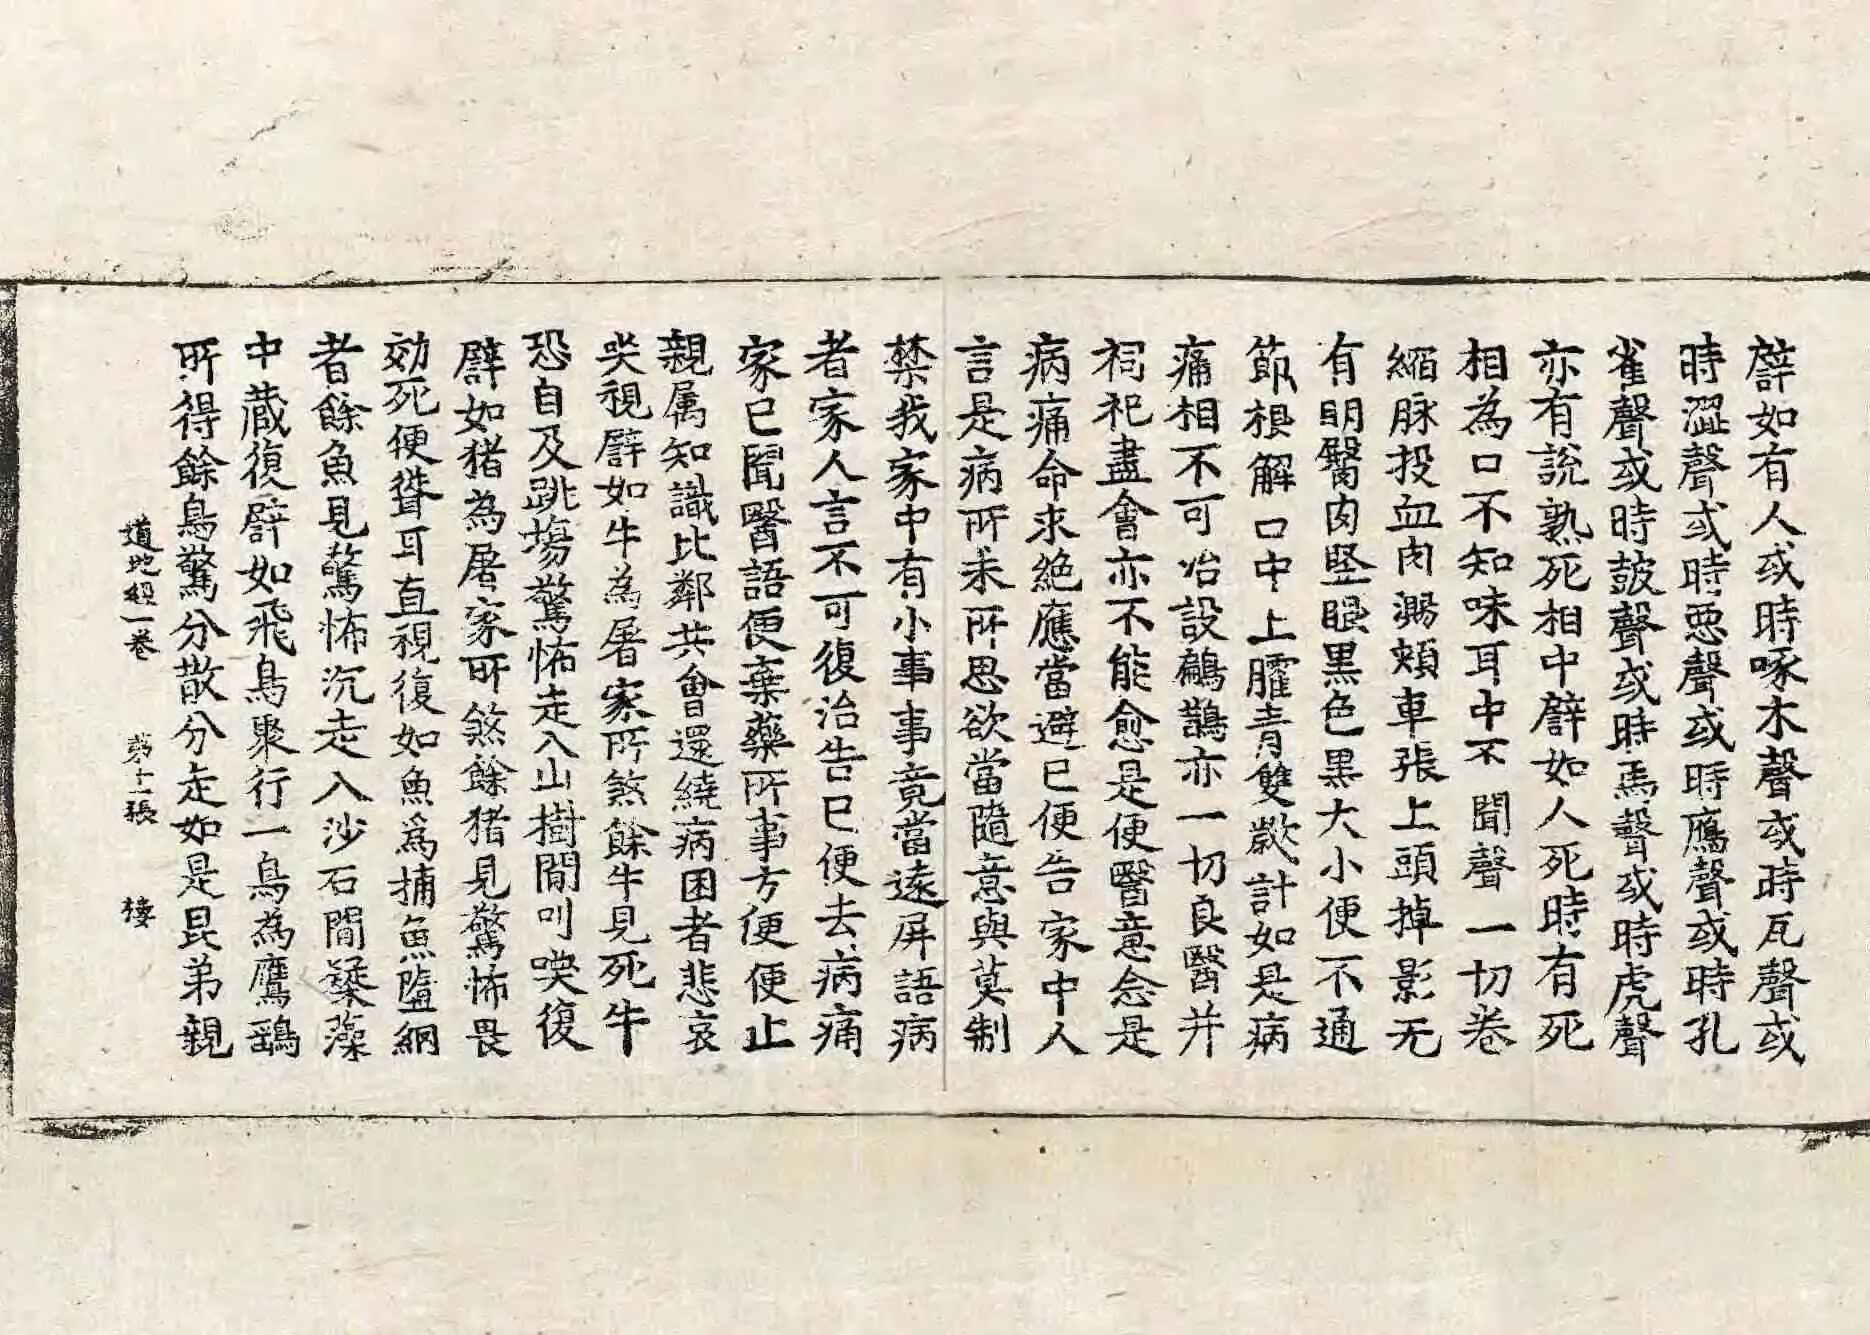 譬如有人或時啄木聲或時瓦聲或
時澀聲或時惡聲或時鴈聲或時孔
雀聲或時鼓聲或時馬聲或時虎聲
亦有說熟死相中譬如人死時有死
相為口不知味耳中不聞聲一切卷
縮脉投血肉澷頰車張上頭掉影无
有明臋肉竪眼黒色黒大小便不通
節根解口中上臛青雙歡計如是病
痛相不可治設鶣鵲亦一切良醫并
祠祀盡會亦不能愈是便醫意念是
病痛命求絕應當避已便告家中人
言是病所未所思欲當隨意與莫制
禁我家中有小事事竟當遠屏語病
者家人言不可復治告已便去病痛
家已聞醫語便棄藥所事方便便止
親属知識比鄰共會還繞病困者悲哀
哭視譬如牛為屠家所煞餘牛見死牛
恐自及跳塲驚怖走入山樹間叫喚復
譬如猪為屠家所煞餘猪見驚怖畏
効死便聳耳直視復如魚為捕魚墮網
者餘魚見驚怖沉走入沙石間𦽦藻
中藏復譬如飛鳥聚行一鳥為鷹鷂
所得餘鳥驚分散分走如是昆弟親
道地經一卷 苐十二張 棲